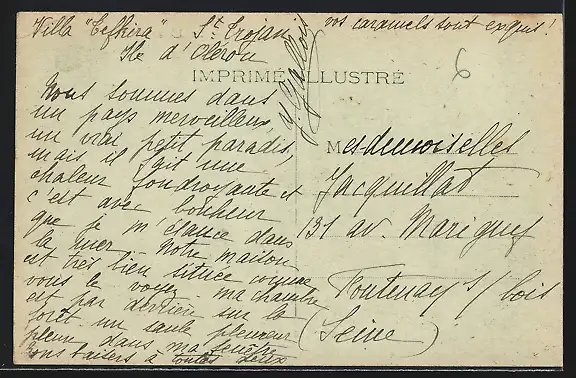 Villa "Tefkira" St Trojan
Ile d'Oléron
vos caramels sont exquis !
IMPRIMÉ ILLUSTRÉ
6
Nous sommes dans
un pays merveilleux,
un vrai petit paradis,
mais il fait une
chaleur foudroyante et
c'est avec bonheur
que je m'élance dans
la mer. Notre maison
est très bien située comme
vous le voyez. ma chambre
est par derrière sur la
forêt. un saule pleureur
pleure dans ma fenêtre
Bons baisers à toutes deux
Mesdemoiselles
Jacquillat
131 av. Marigny
Fontenay s/ bois
(Seine)